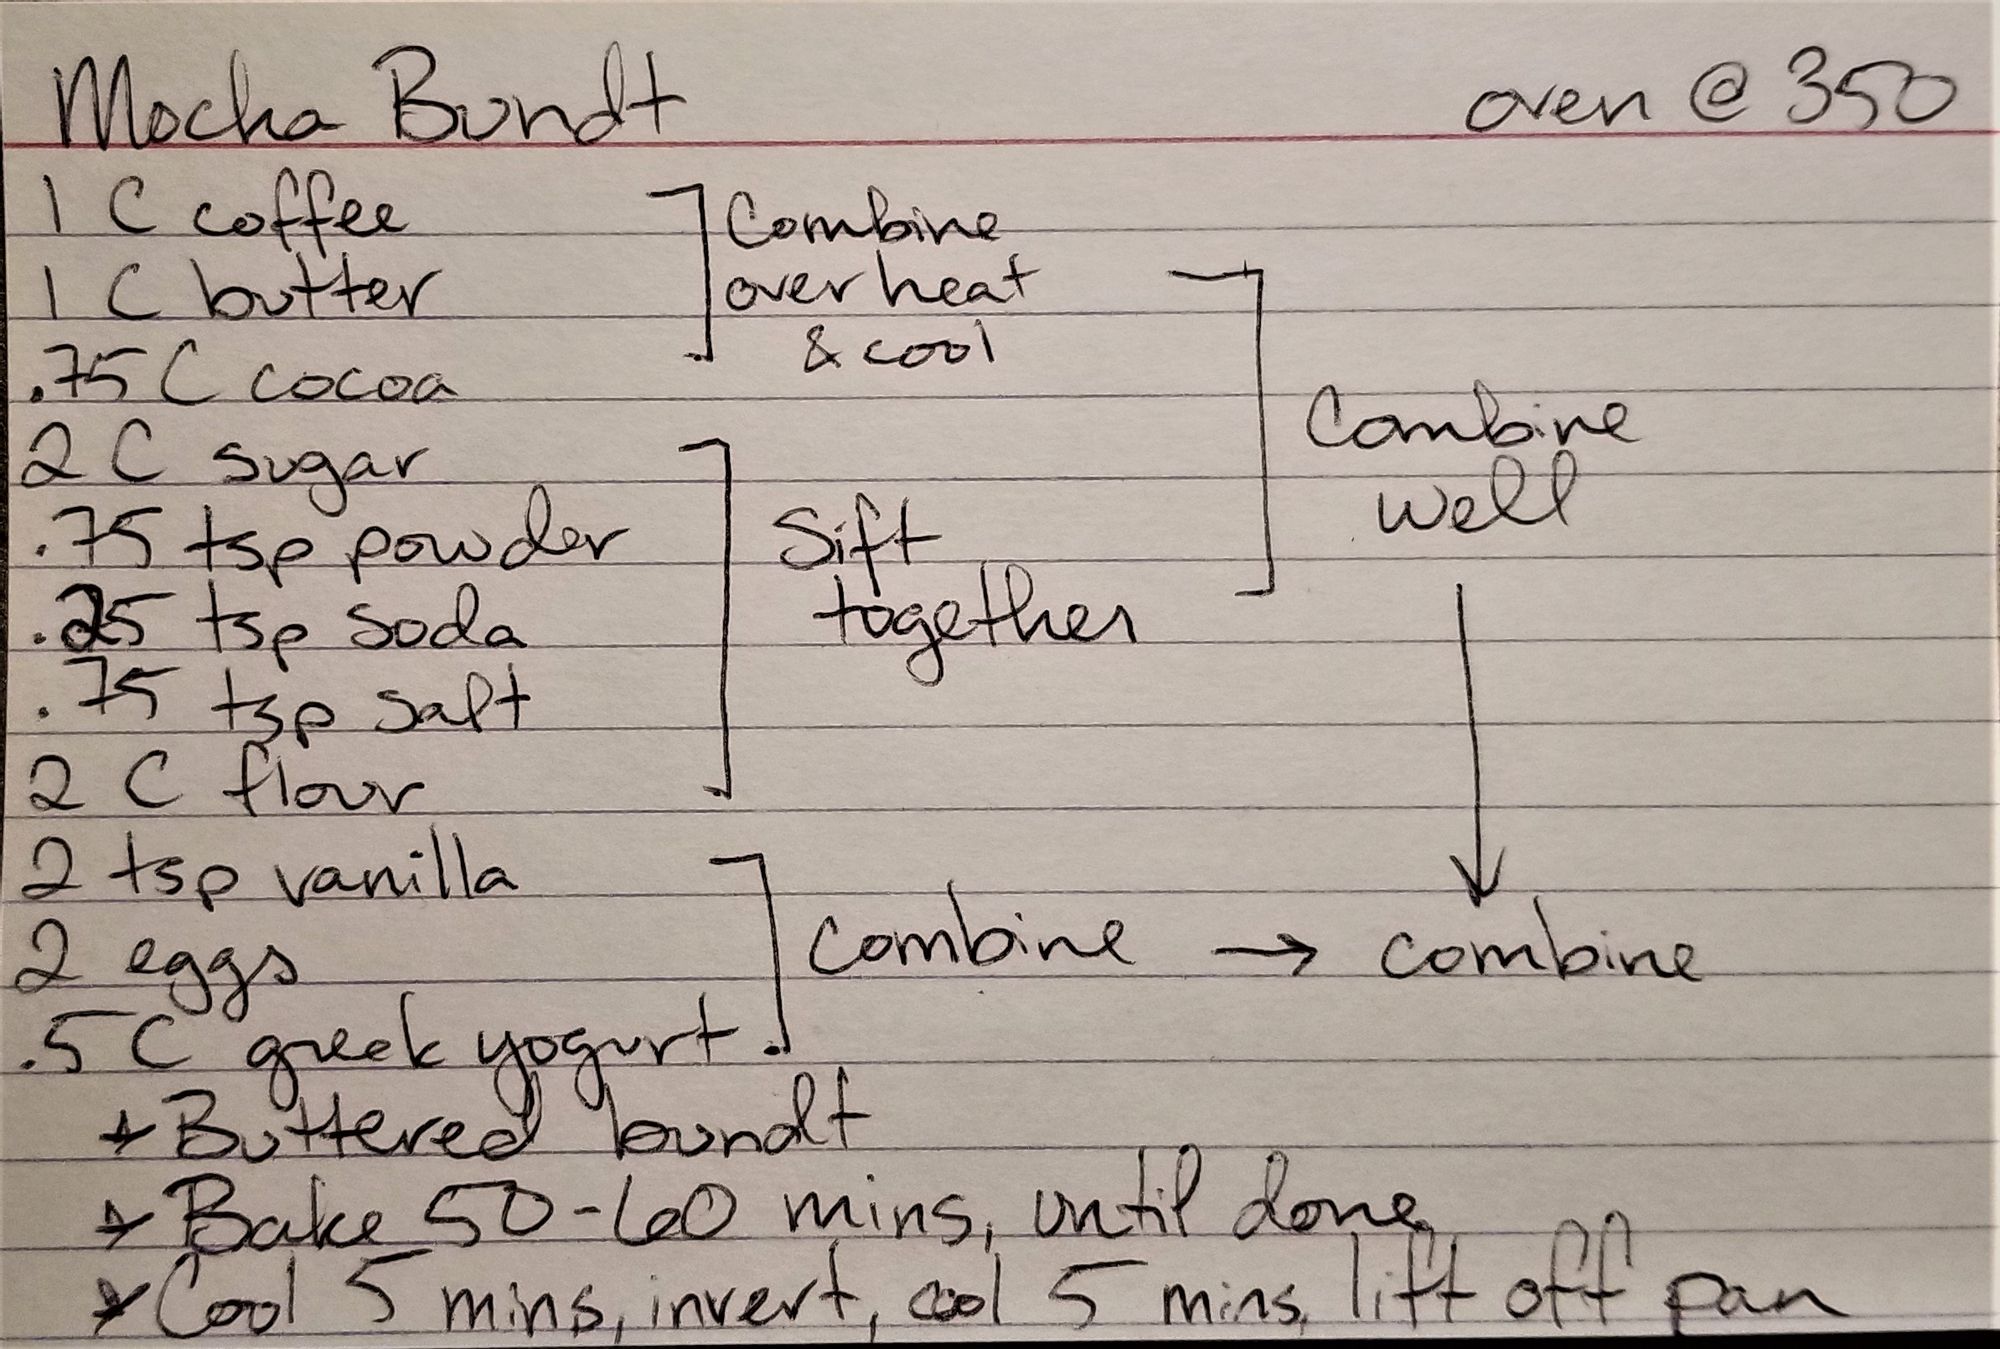 Mocha Bundt oven @ 350
1 C coffee
1 C butter
.75 C cocoa
Combine
over heat
& cool
2 C sugar
.75 tsp powder
.25 tsp soda
.75 tsp salt
2 C flour
Sift
together
Combine
well
2 tsp vanilla
2 eggs
.5 C greek yogurt
Combine → combine
* Buttered bundt
* Bake 50-60 mins, until done
* Cool 5 mins, invert, cool 5 mins, lift off pan